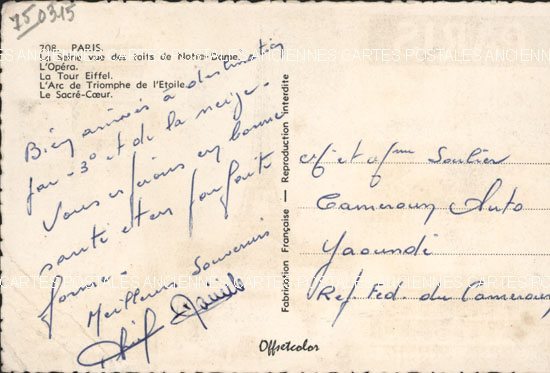 750315
708. PARIS.
La Seine vue des toits de Notre-Dame.
L'Opéra.
La Tour Eiffel.
L'Arc de Triomphe de l'Etoile.
Le Sacré-Cœur.
Bien arrivés à destination
par -3° et de la neige.
Vous espérons en bonne
santé et en parfaite
forme.
Meilleurs Souvenirs
Fabrication Française — Reproduction Interdite
et Soulier
Cameroun Auto
Yaoundé
Rep. Fed. du Cameroun
Offsetcolor
ANCIENNES CARTES POSTALES ANCIENNES CARTES POSTALES